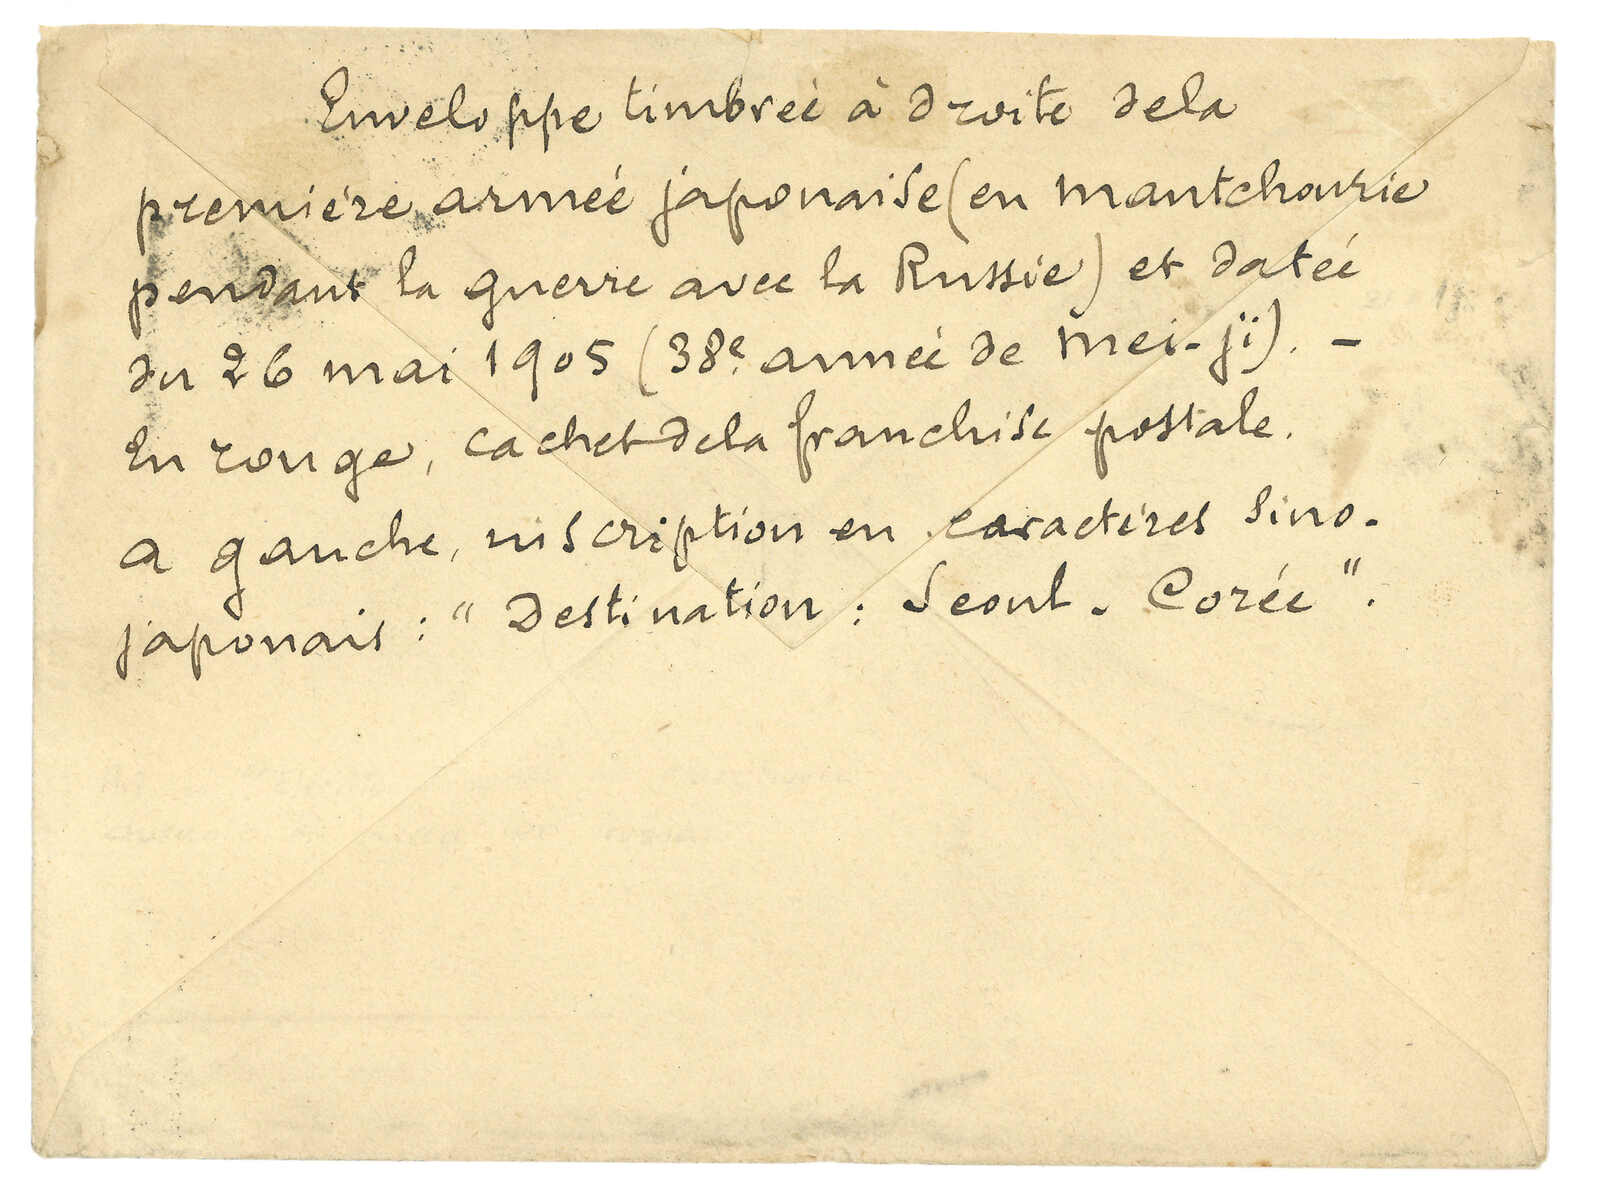 Enveloppe timbrée à droite de la
première armée japonaise (en Mantchourie
pendant la guerre avec la Russie) et datée
du 26 mai 1905 (38e. année de Mei-ji). –
En rouge, cachet de la franchise postale.
a gauche, inscription en caractères sino-
japonais : "Destination : Seoul - Corée".